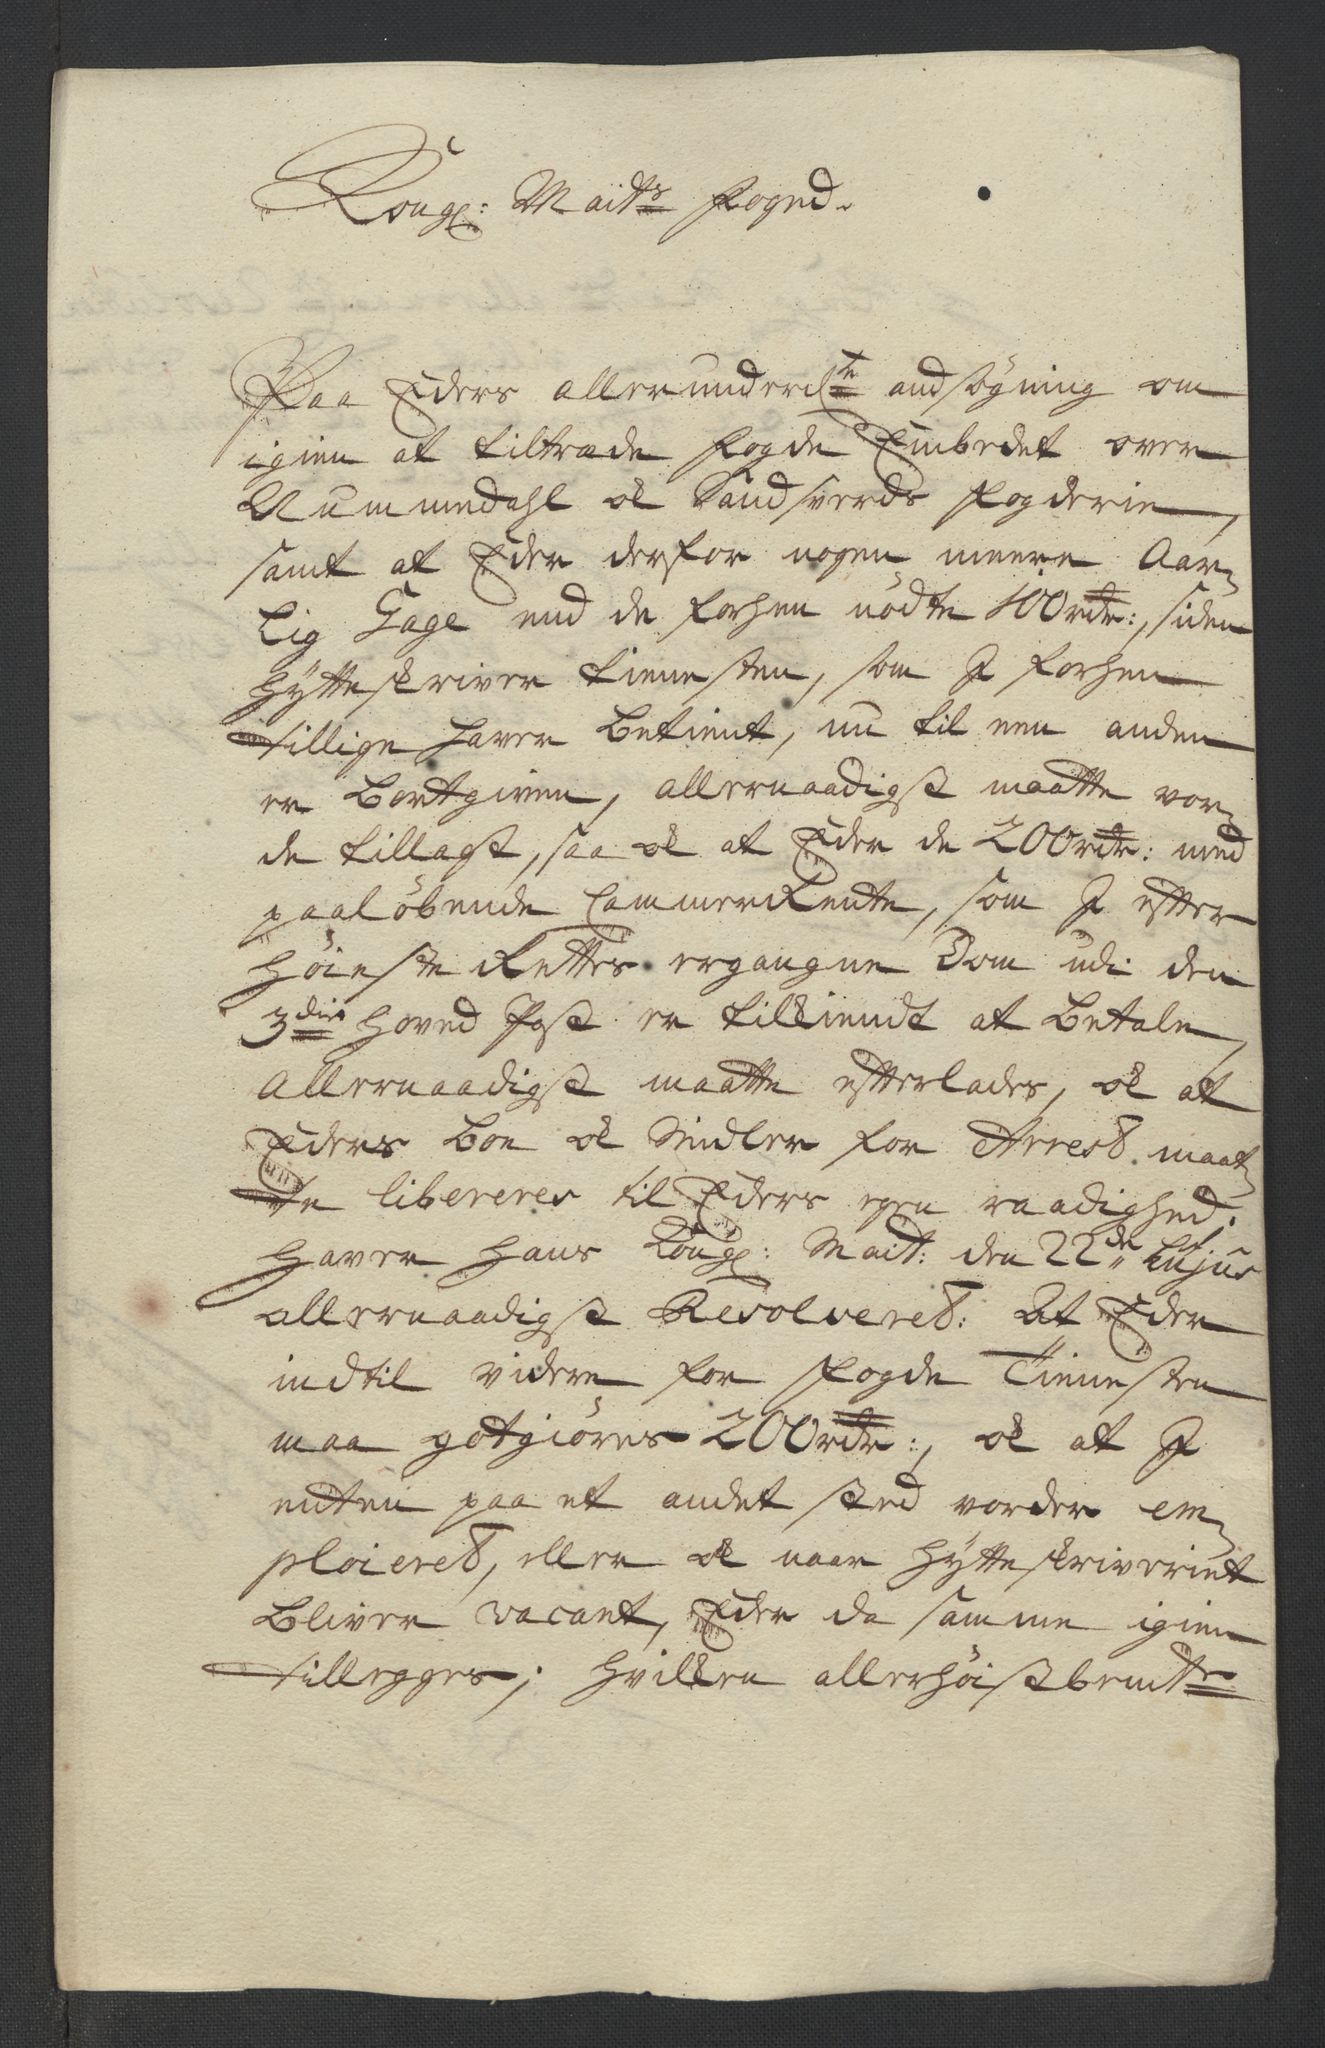 Kongl: Maits Foged.
Paa Eders allerunderdste andsøgning om
igien at tiltræde Fogde Embedet over
Nummedahl ok Sandsverds Fogderie,
samt at Eder derfor nogen meere Aar-
lig Gage end de forhen nødte 100 rdr:, siden
Hytteskriver tienesten, som I forhen
tillige haver betient, nu til een anden
er bortgiven, allernaadigst maatte vor-
de tillagt, saa ok at Eder de 200 rdr: med
paaløbende Cammer Rente, som I efter
Høieste Rettes ergangne Dom udi den
3die hoved Post er tilkiendt at betale,
allernaadigst maatte efterlades, ok at
Eders boe ok Midler for Arrest maat-
te libereres til Eders egen raadighed;
Haver Hans Kongl: Mait: den 22de hujus
allernaadigst Resolveret: At Eder
indtil videre for Fogde Tienesten
maa godtgiøres 200 rdr:, ok at I
enten paa et andet sted vorder em-
ploieret, eller ok naar Hytteskriveriet
bliver vacant, Eder da samme igien
tillegges; hvilken allerhøistbemte